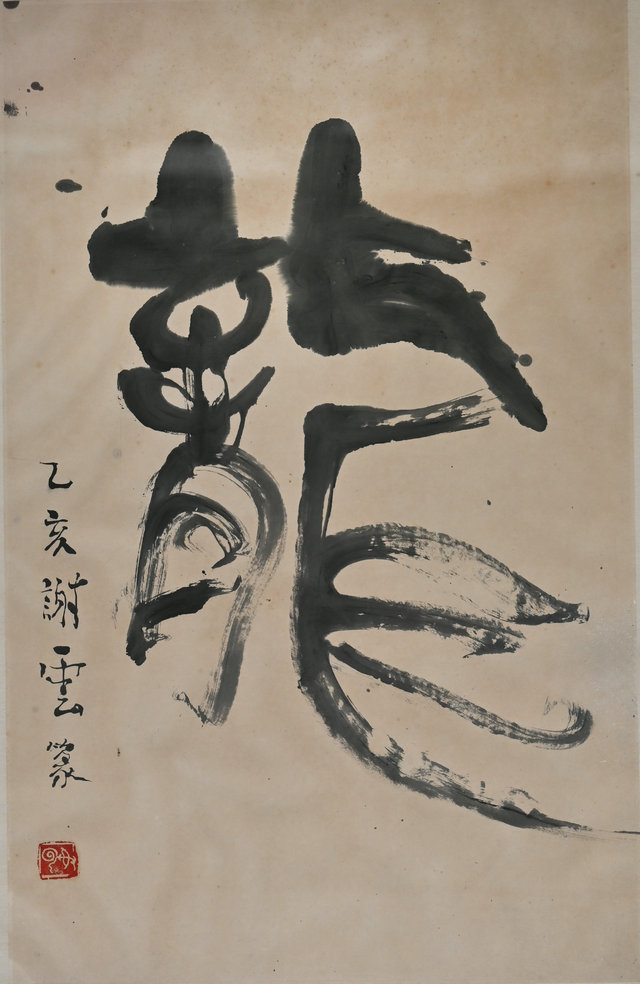 龍
乙亥謝雲篆